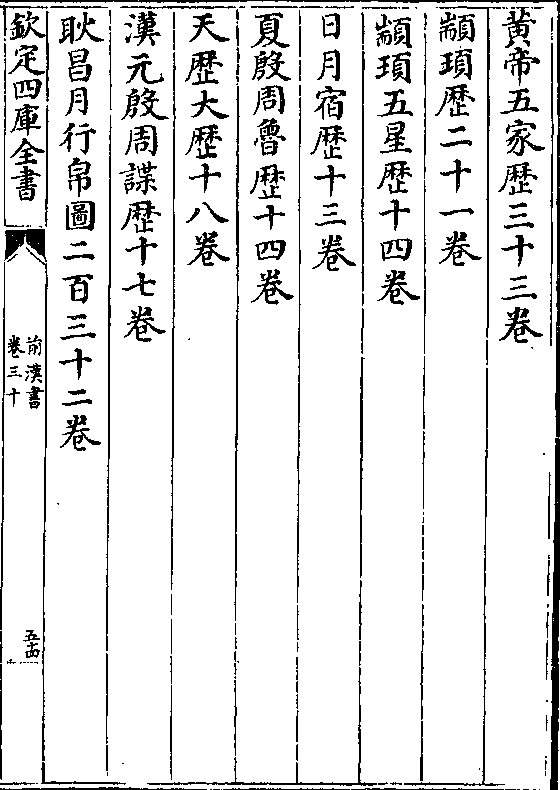 黄帝五家歴三十三卷
顓頊歴二十一卷
顓頊五星歴十四卷
日月宿歴十三卷
夏殷周魯歴十四卷
天歴大歴十八卷
漢元殷周諜歴十七卷
耿昌月行帛圖二百三十二卷
欽定四庫全書
前漢書
卷三十
五十四